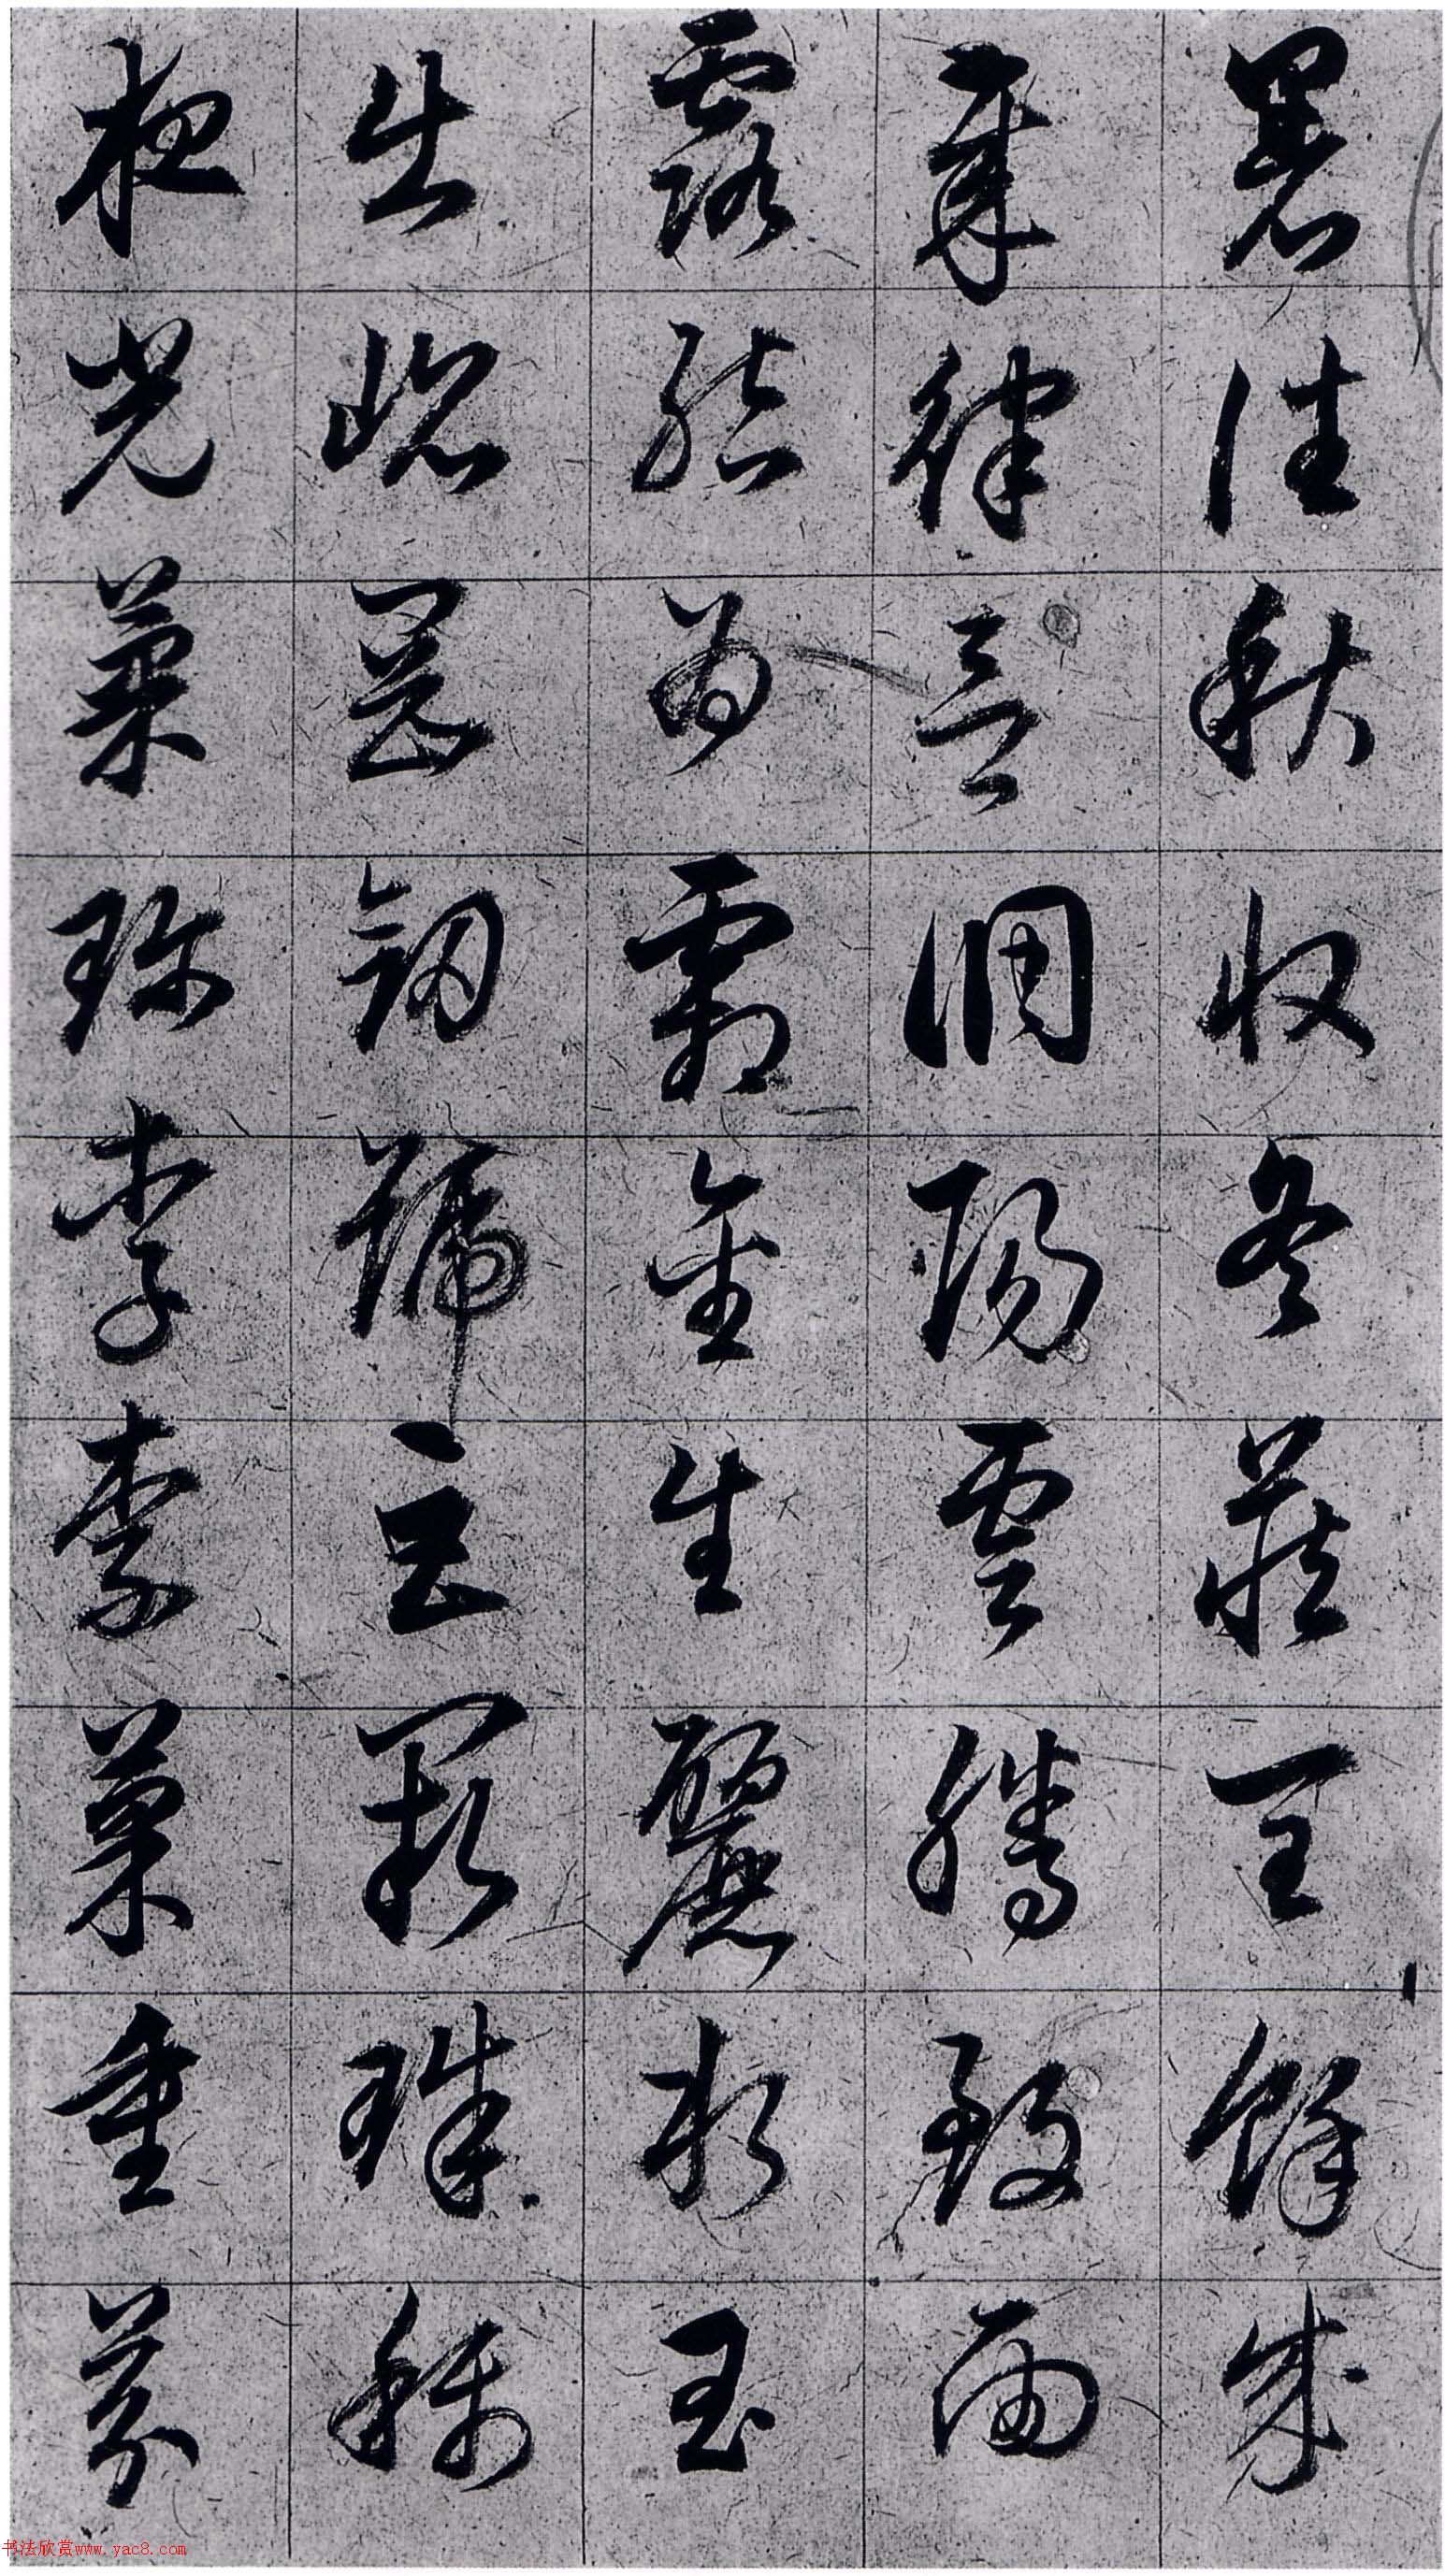 暑往秋收冬藏閏餘成
歲律呂調陽雲騰致雨
露結為霜金生麗水玉
出崐岡釼號巨闕珠稱
夜光菓珍李柰菜重芥
书法欣赏www.yac8.com